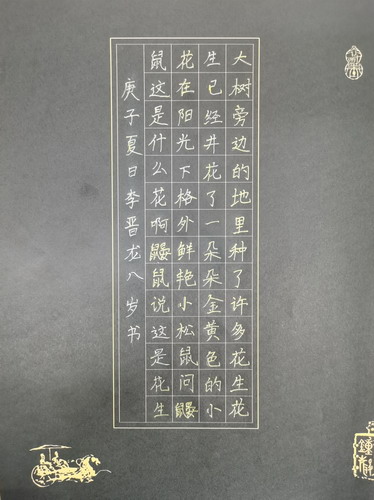 大树旁边的地里种了许多花生花
生已经井花了一朵朵金黄色的小
花在阳光下格外鲜艳小松鼠问鼹
鼠这是什么花啊鼹鼠说这是花生
庚子夏日李晋龙八岁书